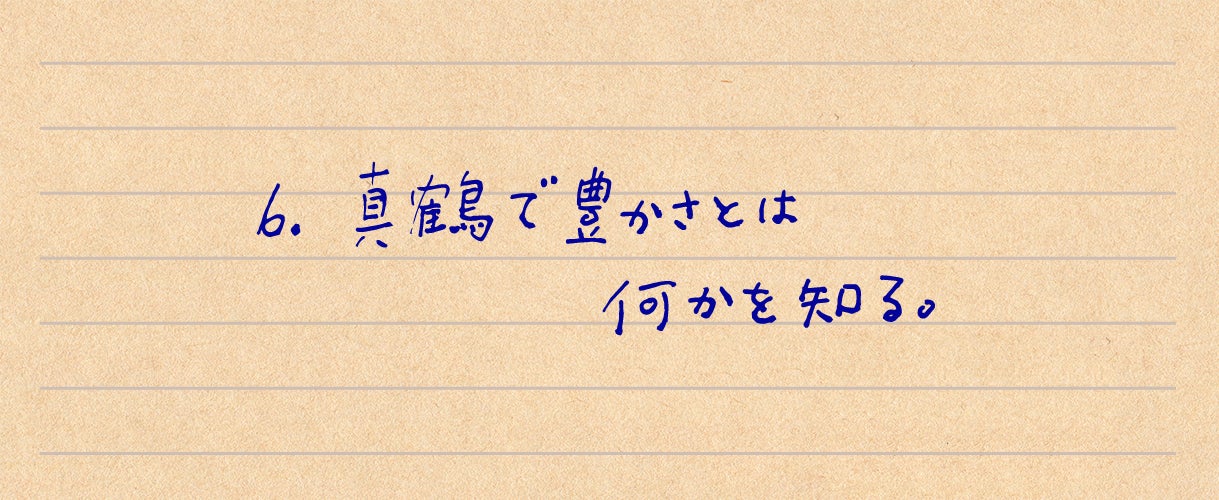 6. 真鶴で豊かさとは
何かを知る。